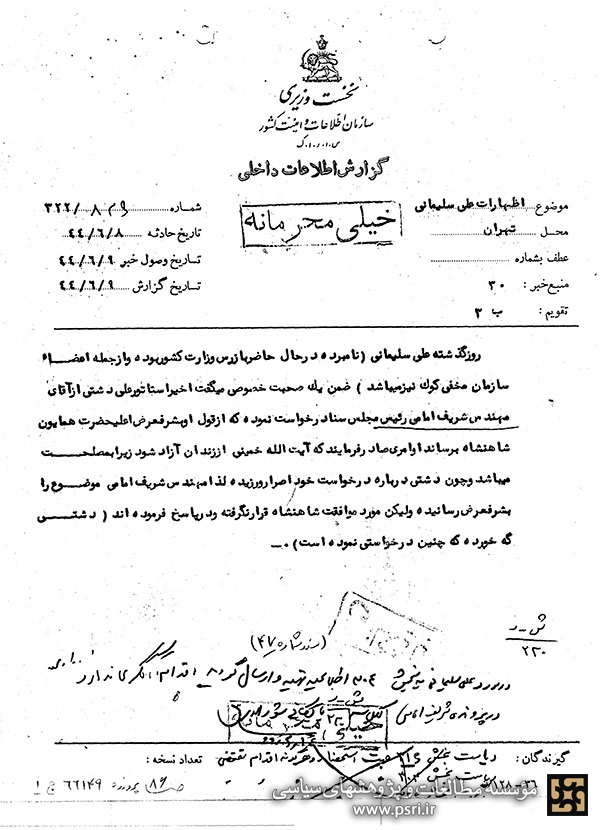 نخست وزیری
سازمان اطلاعات و امنیت کشور
س.ا.و.ا.ک
گزارش اطلاعات داخلی
موضوع اظهارات علی سلیمانی
محل تهران
عطف بشماره
منبع خبر : ۳۰
تقویم : ب ۳
خیلی محرمانه
شماره ۳۲۲/۸۰۹
تاریخ حادثه ۴۴/۶/۸
تاریخ وصول خبر ۴۴/۶/۹
تاریخ گزارش ۴۴/۶/۹
روز گذشته علی سلیمانی (نامبرده در حال حاضر بازرس وزارت کشور بوده و از جمله اعضاء
سازمان مخفی کوک نیز میباشد) ضمن یک صحبت خصوصی میگفت اخیرا سناتور علی دشتی از آقای
مهندس شریف امامی رئیس مجلس سنا درخواست نموده که از قول او بشرفعرض اعلیحضرت همایون
شاهنشاه برساند اوامری صادر فرمایند که آیت الله خمینی از زندان آزاد شود زیرا بمصلحت
میباشد و چون دشتی درباره درخواست خود اصرار ورزیده لذا مهندس شریف امامی موضوع را
بشرفعرض رسانیده ولیکن مورد موافقت شاهنشاه قرار نگرفته و در پاسخ فرموده اند (دشتی
گه خورده که چنین درخواستی نموده است) ۰ــ
ش ـ د
۲۳۰
(سند شماره ۴۷)
در مورد علی سلیمانی به بخش ۳۰۴ اطلاعیه تهیه و ارسال گردید اقدام دیگری ندارد
در پرونده شریف امامی
گیرندگان : ریاست بخش ۳۱۶ جهت استحضار و هرگونه اقدام مقتضی تعداد نسخه :
ریاست بخش
پرونده ۶۶۱۴۹ ج ۱
مؤسسه مطالعات و پژوهشهای سیاسی
www.psri.ir